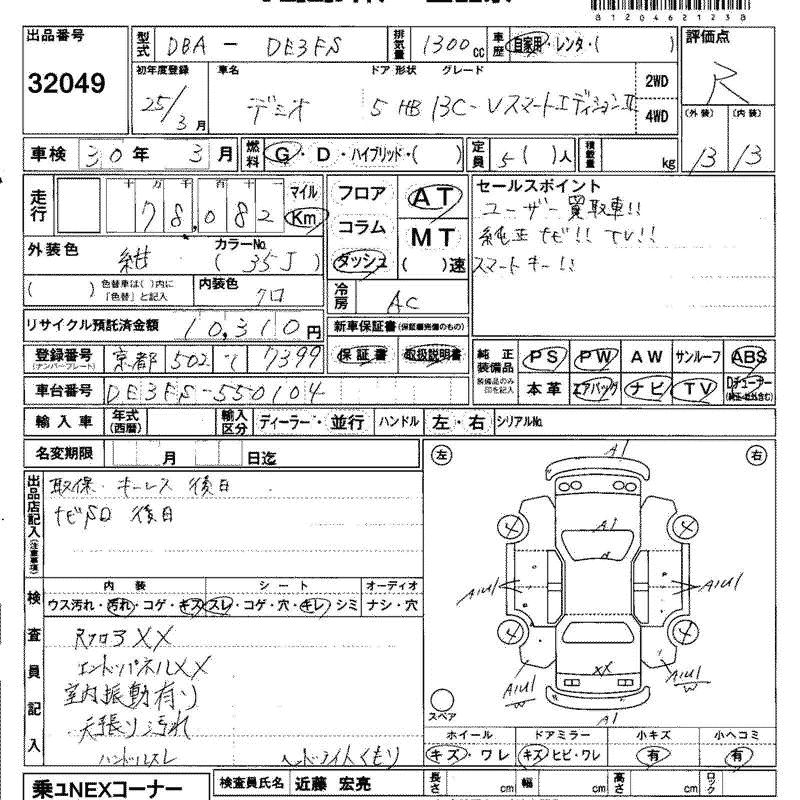 81204621238
出品番号 型式 DBA - DE3FS 排気量 1300cc 車歴 自家用・レンタ・( ) 評価点
32049 R
初年度登録 車名 ドア 形状 グレード
25/3月 デミオ 5 HB 13C-Vスマートエディション II 2WD 4WD
(外装) (内装)
13 / 13
車検 30年 3月 燃料 G・D・ハイブリッド・( ) 定員 5( )人 積載量 kg
走行 十万千百十 78,082 マイル Km
フロア コラム ダッシュ
AT MT ( )速
セールスポイント
ユーザー買取車!!
純正ナビ!! TV!!
スマートキー!!
外装色 紺 カラーNo. ( 35J )
( ) 色替車は( )内に「色替」と記入 内装色 クロ
冷房 AC
リサイクル預託済金額 10,310円
新車保証書(保証継続のもの)
保証書 取扱説明書
登録番号 (ナンバープレート) 京都 502 7399
純正装備品 PS PW AW サンルーフ ABS
装備品のみ印を記入 本革 エアバッグ ナビ TV Dチューナー
車台番号 DE3FS-550104
輸入車 年式(西暦) 輸入区分 ディーラー・並行 ハンドル 左・右 シリアルNo.
名変期限 月 日迄
出品店記入(注意事項)
取保・キーレス 後日
ナビSD 後日
左 右
検査員記入
内装 シート オーディオ
ウス汚れ・汚れ・コゲ・キズ スレ・コゲ・穴・キレ・シミ ナシ・穴
RフロアXX
エンドパネルXX
室内振動有り
天張り汚れ
ハンドルスレ ヘッドライトくもり
A1
A1
A1U1 A1U1
XX
A1U1 W A1U1 W
A1
スペア
ホイール ドアミラー 小キズ 小ヘコミ
キズ・ワレ キズ・ヒビ・ワレ 有 有
乗ユNEXコーナー 検査員氏名 近藤 宏亮 長さ cm 幅 cm 高さ cm ロック